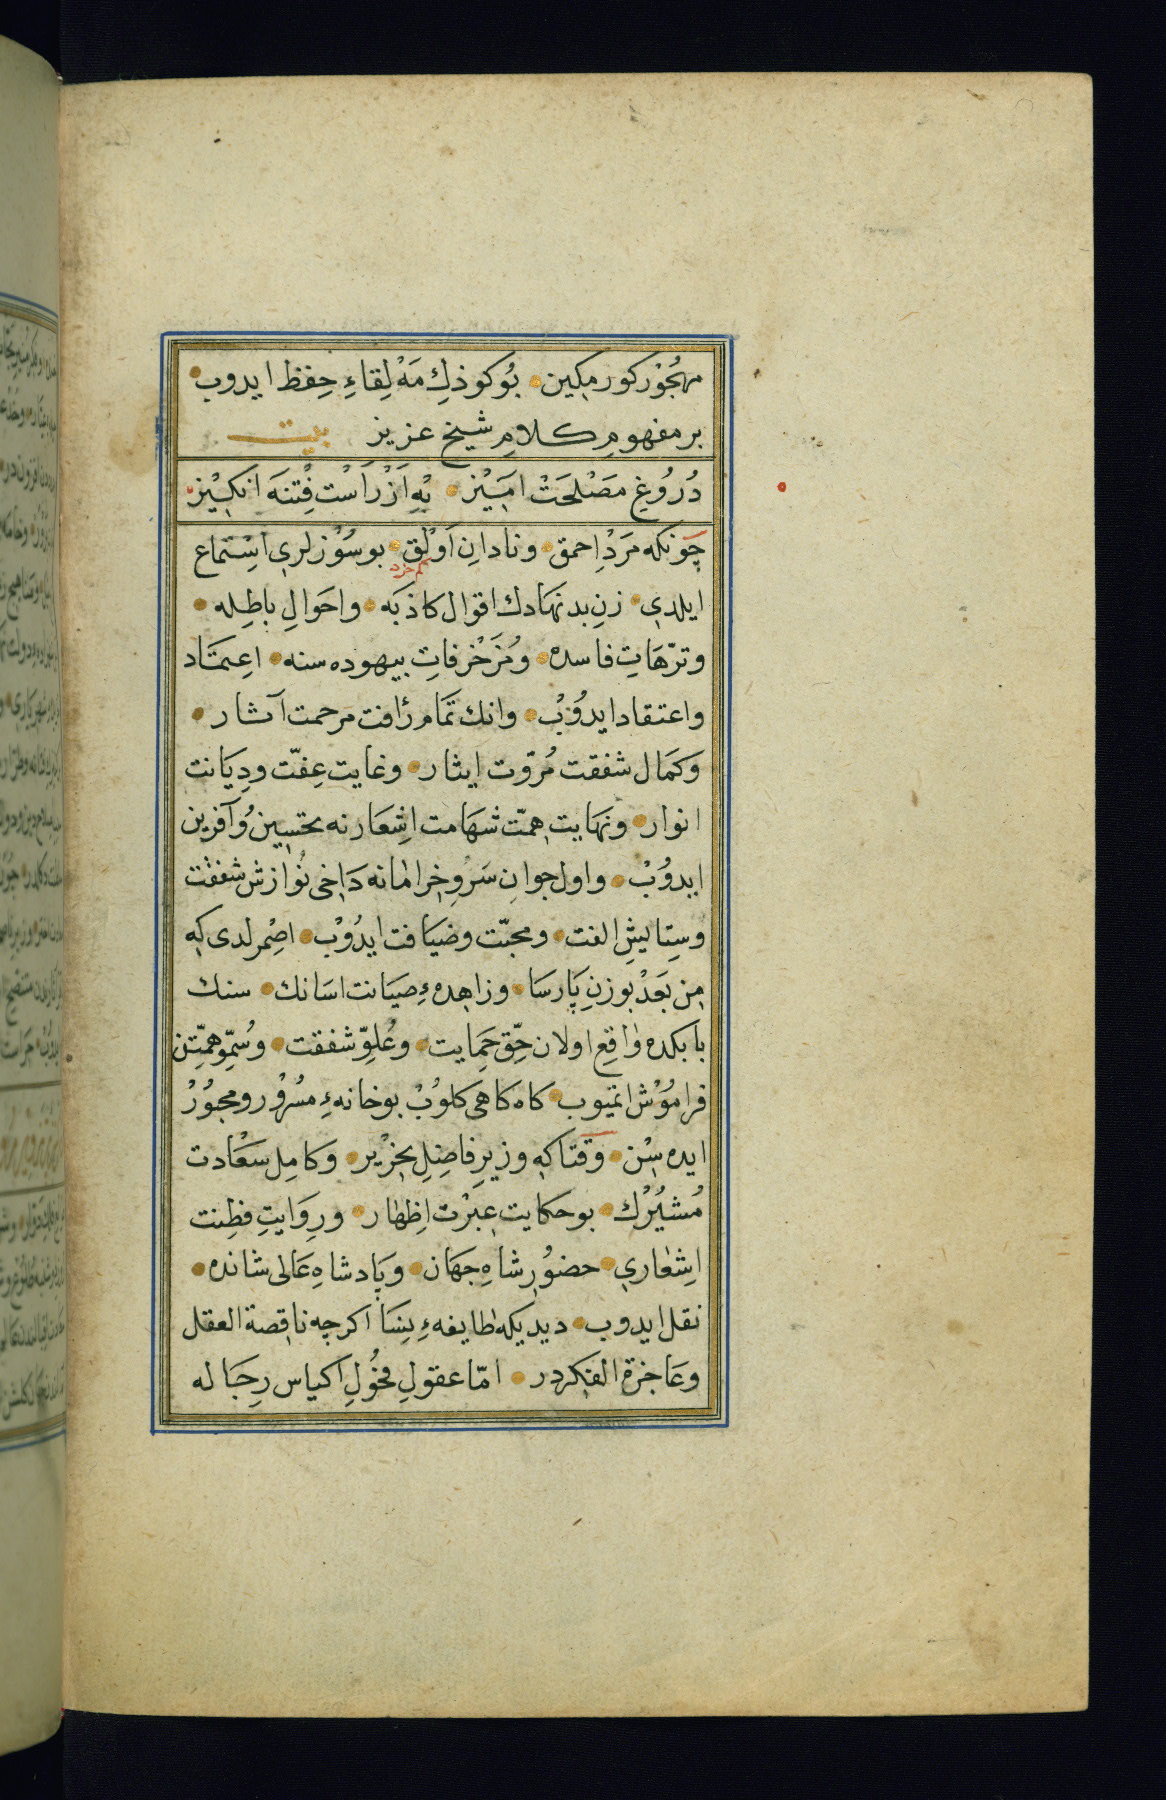 مهجور كورمكين بو كودك مه لقاء حفظ ايدوب
بر مفهوم كلام شيخ عزيز بيت
دُرُوغِ مَصْلَحَتْ اٰمَيْز بِهْ اَزْ رَاسْت فِتْنَه انكيز
چونكه مَرْدِ احمق ونادانِ اَوْلَق بو سُوْزلرى اِسْتماع
كم خرد
ايلدى زنِ بد نهادك اقوال كاذبَه واحَوالِ باطِله
وترّهَاتِ فاسده ومُزَخْرفاتِ بيهوده سنه اعِتمَاد
واعتقاد ايدُوْبْ وانك تَمَام رأفت مرحمت آثار
وَكمَال شفقت مُروّت ايثار وغايت عِفّت ودِيَانت
انوار ونهَايت همّت شهَامت اِشِعَارنه تحسِين وُآفرين
ايدوُبْ واول جوانِ سَرْوِ خرامانه دَاخى نُوازش شفقت
وسِتايشِ الفت ومحبّت وضيَافت ايدُوْب اصِمرلدى كه
مِن بَعَدْ بو زنِ پارسَا وزاهدهءِ صيَانت اسَانك سنك
بابكده وَاقِع اولان حِّقِ حَمِايت وعُلِوّ شفقت وسُمِّو همّتِن
فرامُوْش اتميوب كاه كاهى كلوُبْ بو خانهءِ مسُرْور ومجبُوُرْ
ايده سِْن وَقتاكه وزيرِ فاضِلِ نحِرْير وكامِل سَعَادت
مُشيُرْك بو حكايت عِبرْت اِظهٰار ورِوَايتِ فِطِنت
اِشِعٰارى حضوُرِ شاهِ جهَان وپَادشاهِ عَالى شانده
نقل ايدوب ديديكه طايفهءِ نِسَا اكرچه ناقِصة العقل
وعَاجزة الفِكردر امّا عقولِ فحُولِ اكياس رِجَاله